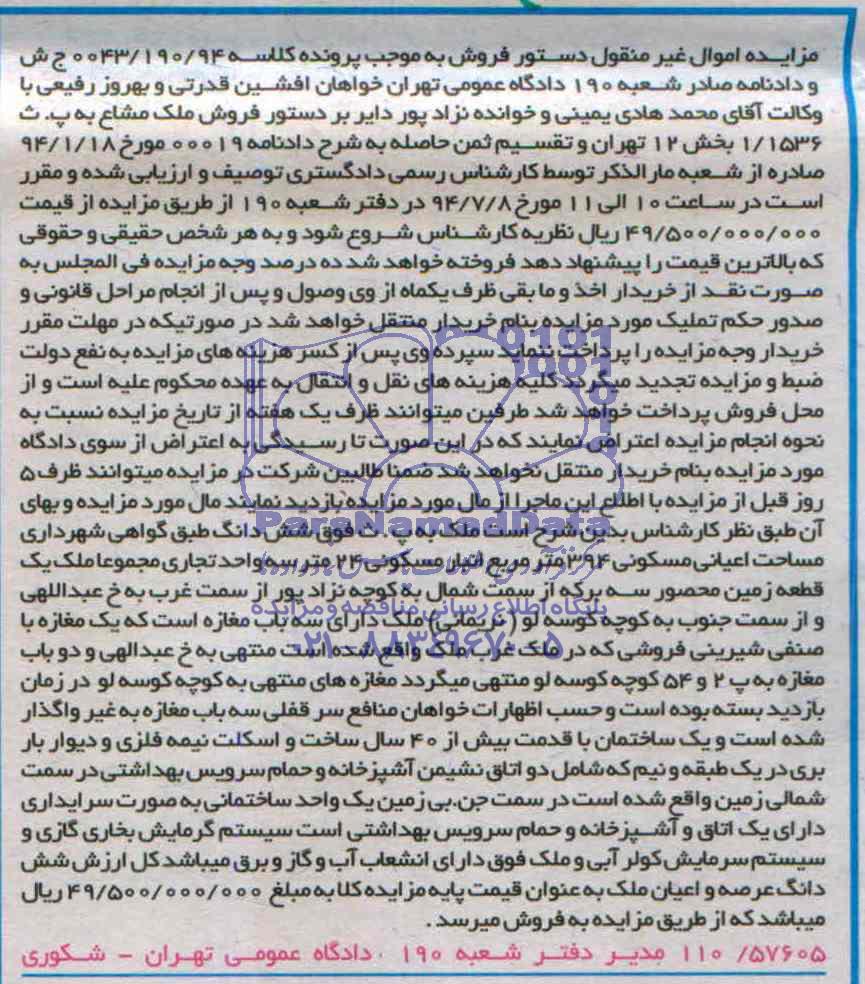 مزایده اموال غیر منقول دستور فروش به موجب پرونده کلاسه ۰۰۴۳/۱۹۰/۹۴ ج ش
و دادنامه صادر شعبه ۱۹۰ دادگاه عمومی تهران خواهان افشین قدرتی و بهروز رفیعی با
وکالت آقای محمد هادی یمینی و خوانده نژاد پور دایر بر دستور فروش ملک مشاع به پ. ث
۱/۱۵۳۶ بخش ۱۲ تهران و تقسیم ثمن حاصله به شرح دادنامه ۰۰۰۱۹ مورخ ۹۴/۱/۱۸
صادره از شعبه مارالذکر توسط کارشناس رسمی دادگستری توصیف و ارزیابی شده و مقرر
است در ساعت ۱۰ الی ۱۱ مورخ ۹۴/۷/۸ در دفتر شعبه ۱۹۰ از طریق مزایده از قیمت
۴۹/۵۰۰/۰۰۰/۰۰۰ ریال نظریه کارشناس شروع شود و به هر شخص حقیقی و حقوقی
که بالاترین قیمت را پیشنهاد دهد فروخته خواهد شد ده درصد وجه مزایده فی المجلس به
صورت نقد از خریدار اخذ و مابقی ظرف یکماه از وی وصول و پس از انجام مراحل قانونی و
صدور حکم تملیک مورد مزایده بنام خریدار منتقل خواهد شد در صورتیکه در مهلت مقرر
خریدار وجه مزایده را پرداخت ننماید سپرده وی پس از کسر هزینه های مزایده به نفع دولت
ضبط و مزایده تجدید میگردد کلیه هزینه های نقل و انتقال به عهده محکوم علیه است و از
محل فروش پرداخت خواهد شد طرفین میتوانند ظرف یک هفته از تاریخ مزایده نسبت به
نحوه انجام مزایده اعتراض نمایند که در این صورت تا رسیدگی به اعتراض از سوی دادگاه
مورد مزایده بنام خریدار منتقل نخواهد شد ضمنا طالبین شرکت در مزایده میتوانند ظرف ۵
روز قبل از مزایده با اطلاع این ماجرا از مال مورد مزایده بازدید نمایند مال مورد مزایده و بهای
آن طبق نظر کارشناس بدین شرح است ملک به پ. ث فوق شش دانگ طبق گواهی شهرداری
مساحت اعیانی مسکونی ۳۹۴ متر مربع انبار مسکونی ۲۴ متر سه واحد تجاری مجموعا ملک یک
قطعه زمین محصور سه بر که از سمت شمال به کوچه نژاد پور از سمت غرب به خ عبداللهی
و از سمت جنوب به کوچه کوسه لو (نریمانی) ملک دارای سه باب مغازه است که یک مغازه با
صنفی شیرینی فروشی که در ملک غرب ملک واقع شده است منتهی به خ عبدالهی و دو باب
مغازه به پ ۲ و ۵۴ کوچه کوسه لو منتهی میگردد مغازه های منتهی به کوچه کوسه لو در زمان
بازدید بسته بوده است و حسب اظهارات خواهان منافع سر قفلی سه باب مغازه به غیر واگذار
شده است و یک ساختمان با قدمت بیش از ۴۰ سال ساخت و اسکلت نیمه فلزی و دیوار بار
بری در یک طبقه و نیم که شامل دو اتاق نشیمن آشپزخانه و حمام سرویس بهداشتی در سمت
شمالی زمین واقع شده است در سمت جن.بی زمین یک واحد ساختمانی به صورت سرایداری
دارای یک اتاق و آشپزخانه و حمام سرویس بهداشتی است سیستم گرمایش بخاری گازی و
سیستم سرمایش کولر آبی و ملک فوق دارای انشعاب آب و گاز و برق میباشد کل ارزش شش
دانگ عرصه و اعیان ملک به عنوان قیمت پایه مزایده کلا به مبلغ ۴۹/۵۰۰/۰۰۰/۰۰۰ ریال
میباشد که از طریق مزایده به فروش میرسد.
۱۱۰/۵۷۶۰۵ مدیر دفتر شعبه ۱۹۰ دادگاه عمومی تهران - شکوری
ParsNamadData
پایگاه اطلاع رسانی مناقصه و مزایده
۰۲۱-۸۸۳۴۹۶۷۰-۵